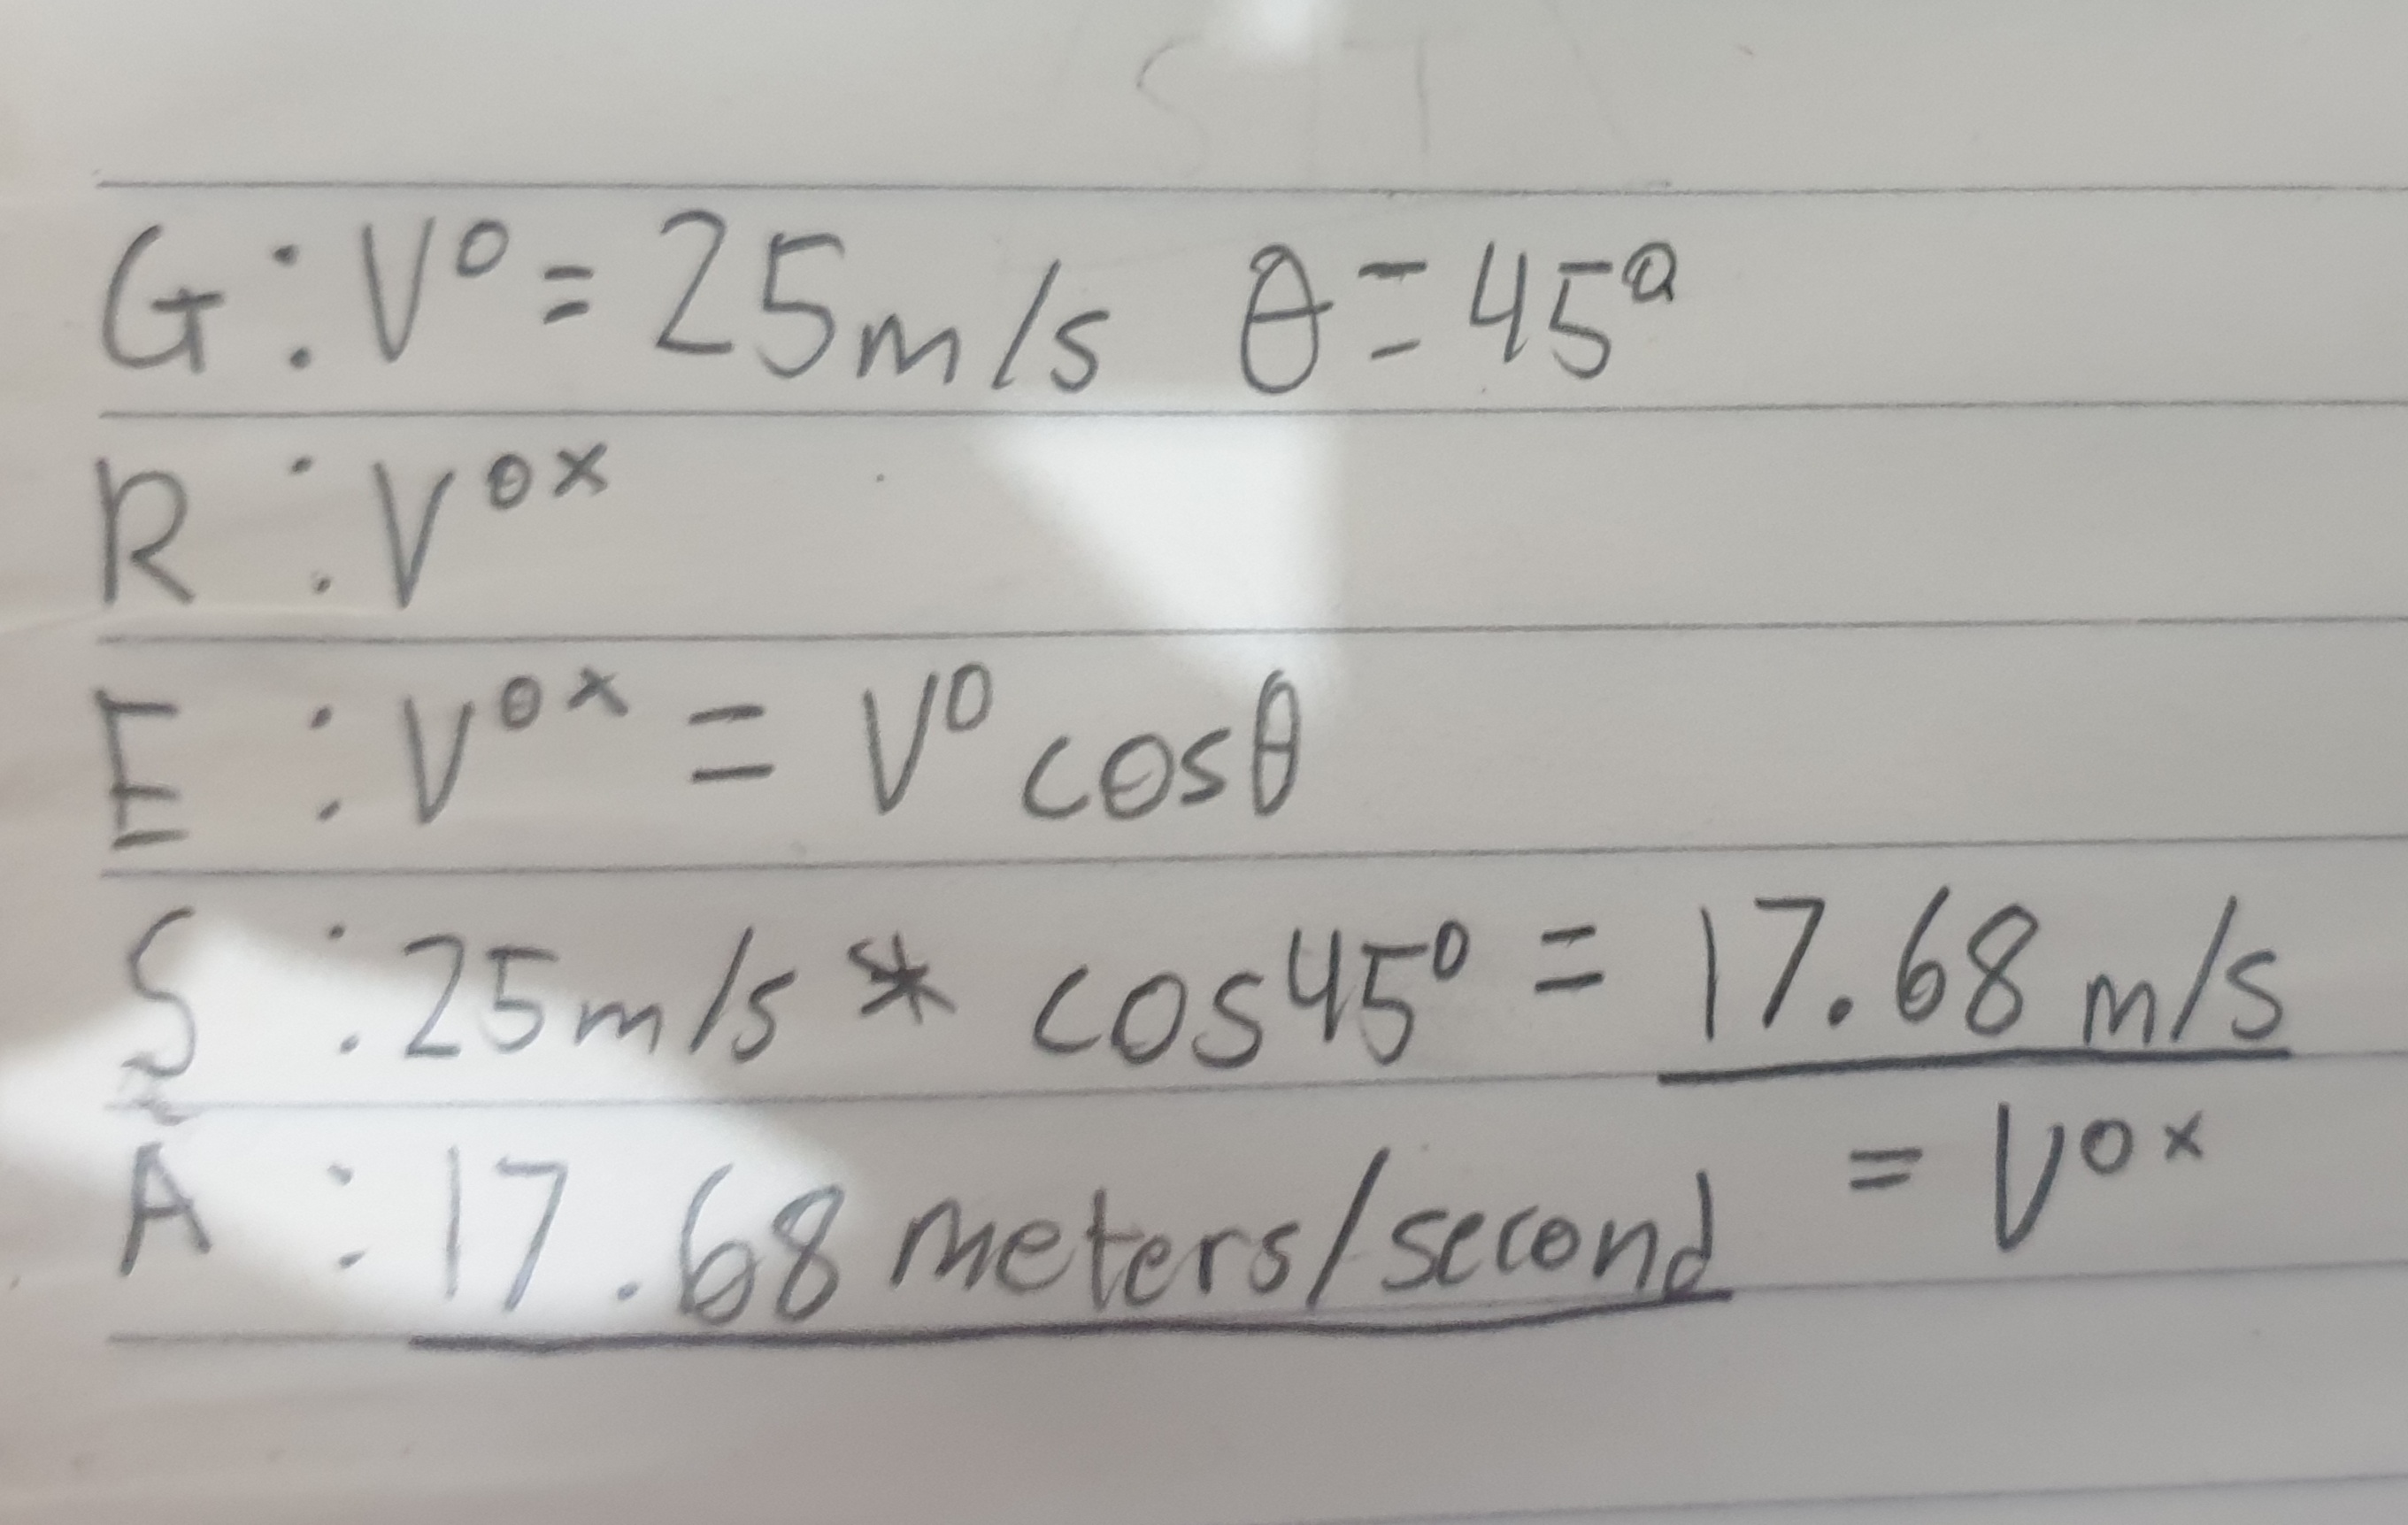 G: V⁰ = 25m/s θ = 45°
R: V⁰ˣ
E: V⁰ˣ = V⁰ cosθ
S: 25m/s * cos45° = 17.68 m/s
A: 17.68 meters/second = V⁰ˣ